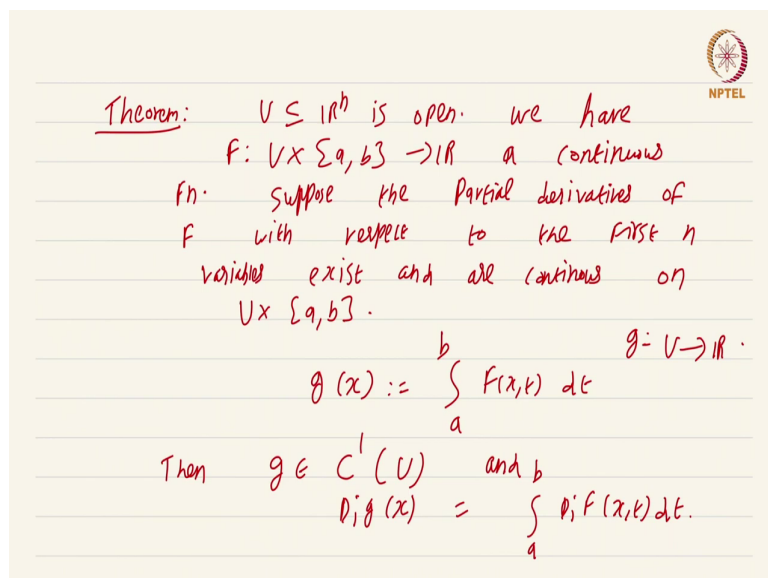 NPTEL
Theorem: U ⊆ ℝⁿ is open. we have
F: U× [a, b] → ℝ a continuous
Fn. Suppose the Partial derivatives of
F with respect to the first n
variables exist and are continous on
U× [a, b].
g: U → ℝ.
g(x) := ∫_a^b F(x,t) dt
Then g ∈ C¹(U) and
D_i g(x) = ∫_a^b D_i F(x,t) dt.